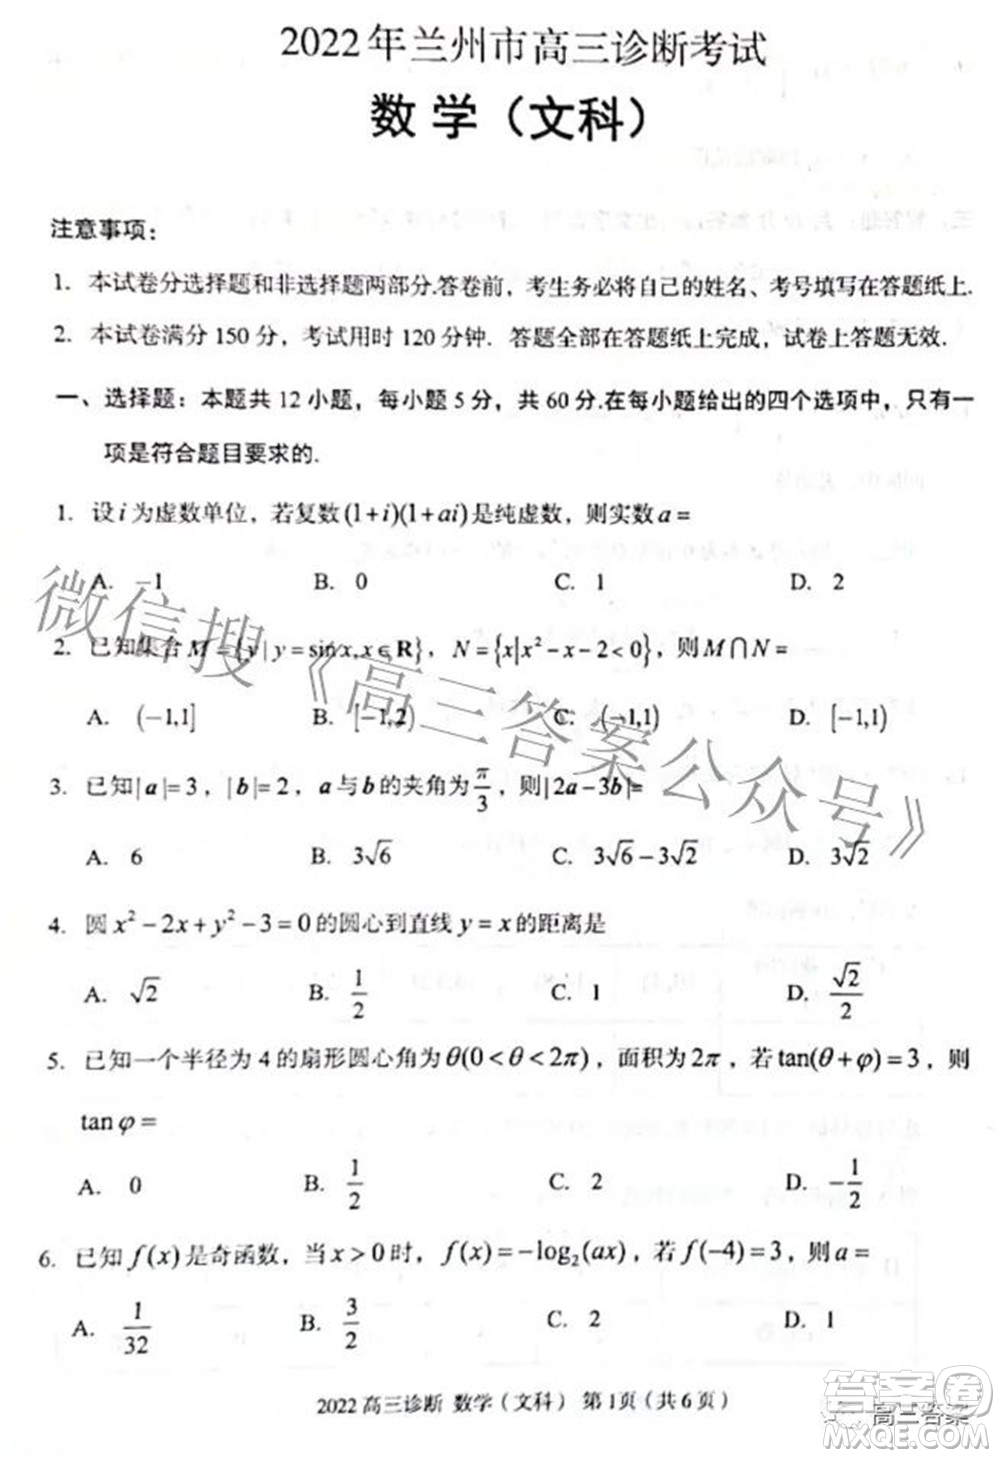 2022年兰州市高三诊断考试
数学（文科）
注意事项：
1. 本试卷分选择题和非选择题两部分.答卷前，考生务必将自己的姓名、考号填写在答题纸上.
2. 本试卷满分 150 分，考试用时 120 分钟. 答题全部在答题纸上完成，试卷上答题无效.
一、选择题：本题共 12 小题，每小题 5 分，共 60 分.在每小题给出的四个选项中，只有一
项是符合题目要求的.
1. 设 i 为虚数单位，若复数 (1+i)(1+ai) 是纯虚数，则实数 a =
A. -1 B. 0 C. 1 D. 2
2. 已知集合 M = {y | y = sin x, x ∈ R}，N = {x | x² - x - 2 < 0}，则 M ∩ N =
A. (-1,1] B. [-1,2) C. (-1,1) D. [-1,1)
3. 已知 |a| = 3，|b| = 2，a 与 b 的夹角为 π/3，则 |2a - 3b| =
A. 6 B. 3√6 C. 3√6 - 3√2 D. 3√2
4. 圆 x² - 2x + y² - 3 = 0 的圆心到直线 y = x 的距离是
A. √2 B. 1/2 C. 1 D. √2/2
5. 已知一个半径为 4 的扇形圆心角为 θ(0 < θ < 2π)，面积为 2π，若 tan(θ + φ) = 3，则
tan φ =
A. 0 B. 1/2 C. 2 D. -1/2
6. 已知 f(x) 是奇函数，当 x > 0 时，f(x) = -log₂(ax)，若 f(-4) = 3，则 a =
A. 1/32 B. 3/2 C. 2 D. 1
2022 高三诊断 数学（文科） 第 1 页（共 6 页）
微信搜《高三答案公众号》
高三答案
答案圈
MXQE.COM